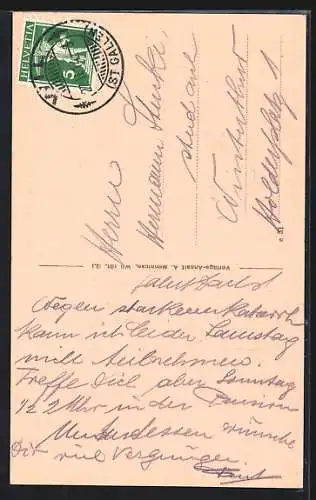 HELVETIA
5
WIL
(ST. GALLEN)
Herrn
Hermann
Winterthur
Verlags-Anstalt A. Bernetse, Wil (St. G.)
Wegen starkem Katarrh
kann ich leider Samstag
nicht teilnehmen.
Treffe Dich aber Sonntag
½ 2 Uhr in der Pension
Unterdessen wünsche
Dir viel Vergnügen.